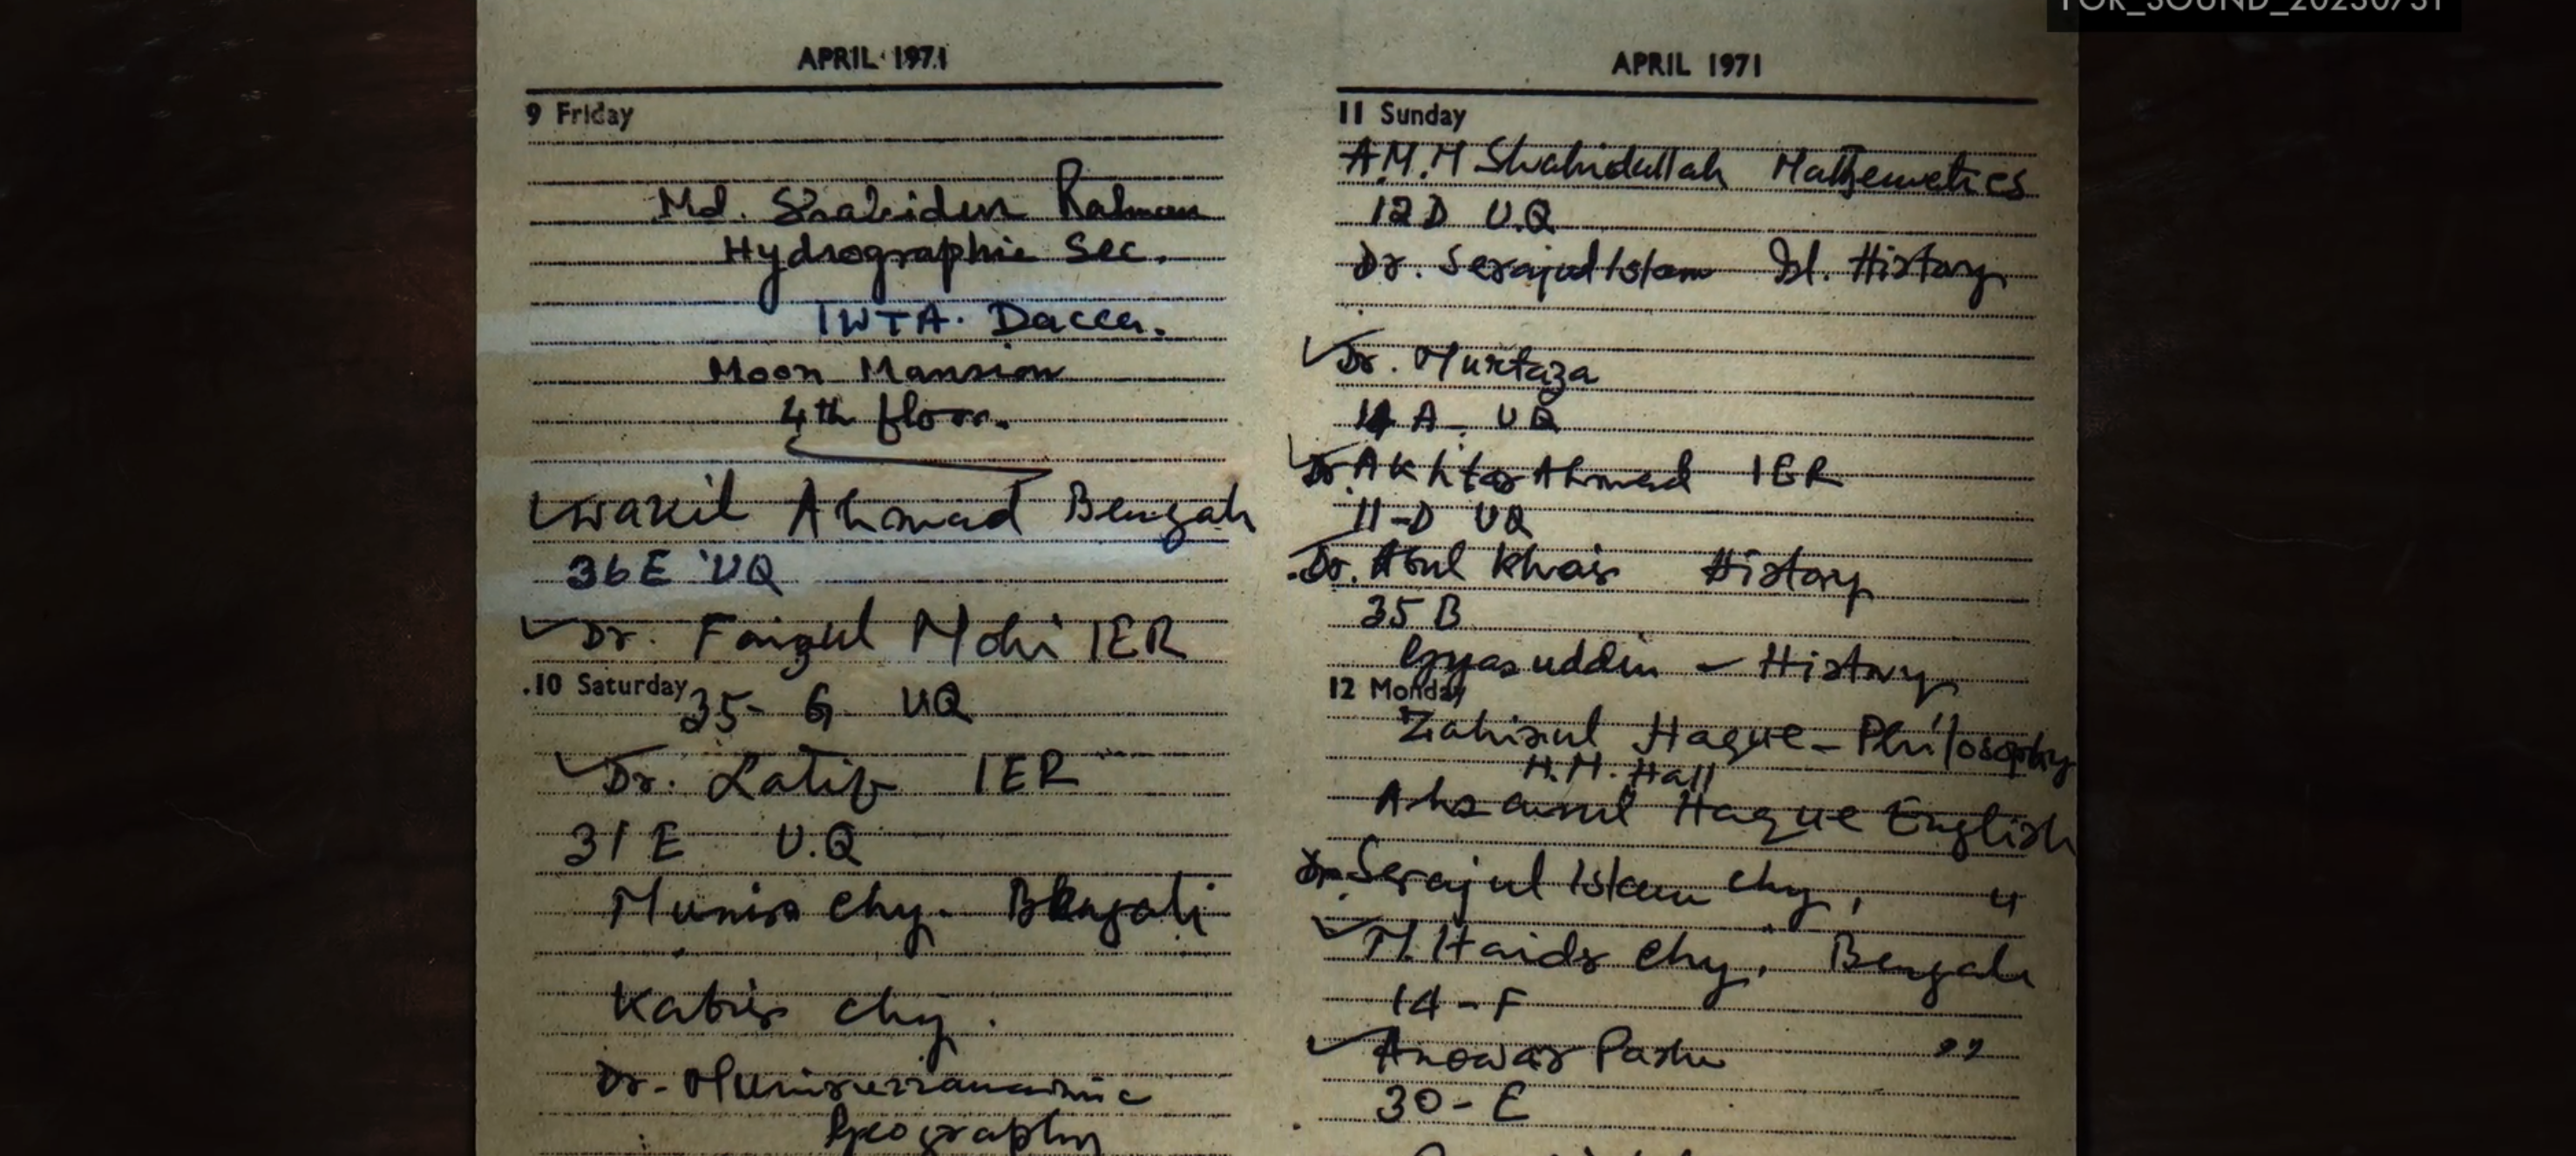 APRIL 1971
9 Friday
Md. Shahidur Rahman
Hydrographic Sec.
IWTA. Dacca.
Moon Mansion
4th floor.
Wakil Ahmad Bengali
36E UQ
Dr. Faizul Mohi IER
10 Saturday
35- G UQ
Dr. Latif IER
31 E U.Q
Munir Chy. Bengali
Kabir Chy.
Dr.
Geography
APRIL 1971
11 Sunday
A.M.M Shahidullah Mathemetics
12 D U.Q
Dr. Serajul Islam Isl. History
Dr. Murtaza
A- UQ
Dr Akhtar Ahmad IER
11-D UQ
Dr. Abul Khair History
35 B
Gyasuddin - History
12 Monday
Zahirul Haque - Philosophy
H.M. Hall
Ahsanul Haque English
Dr. Serajul Islam Chy, "
M. Haidr Chy, Bengali
14 - F
Anowar Pasha "
30 - E